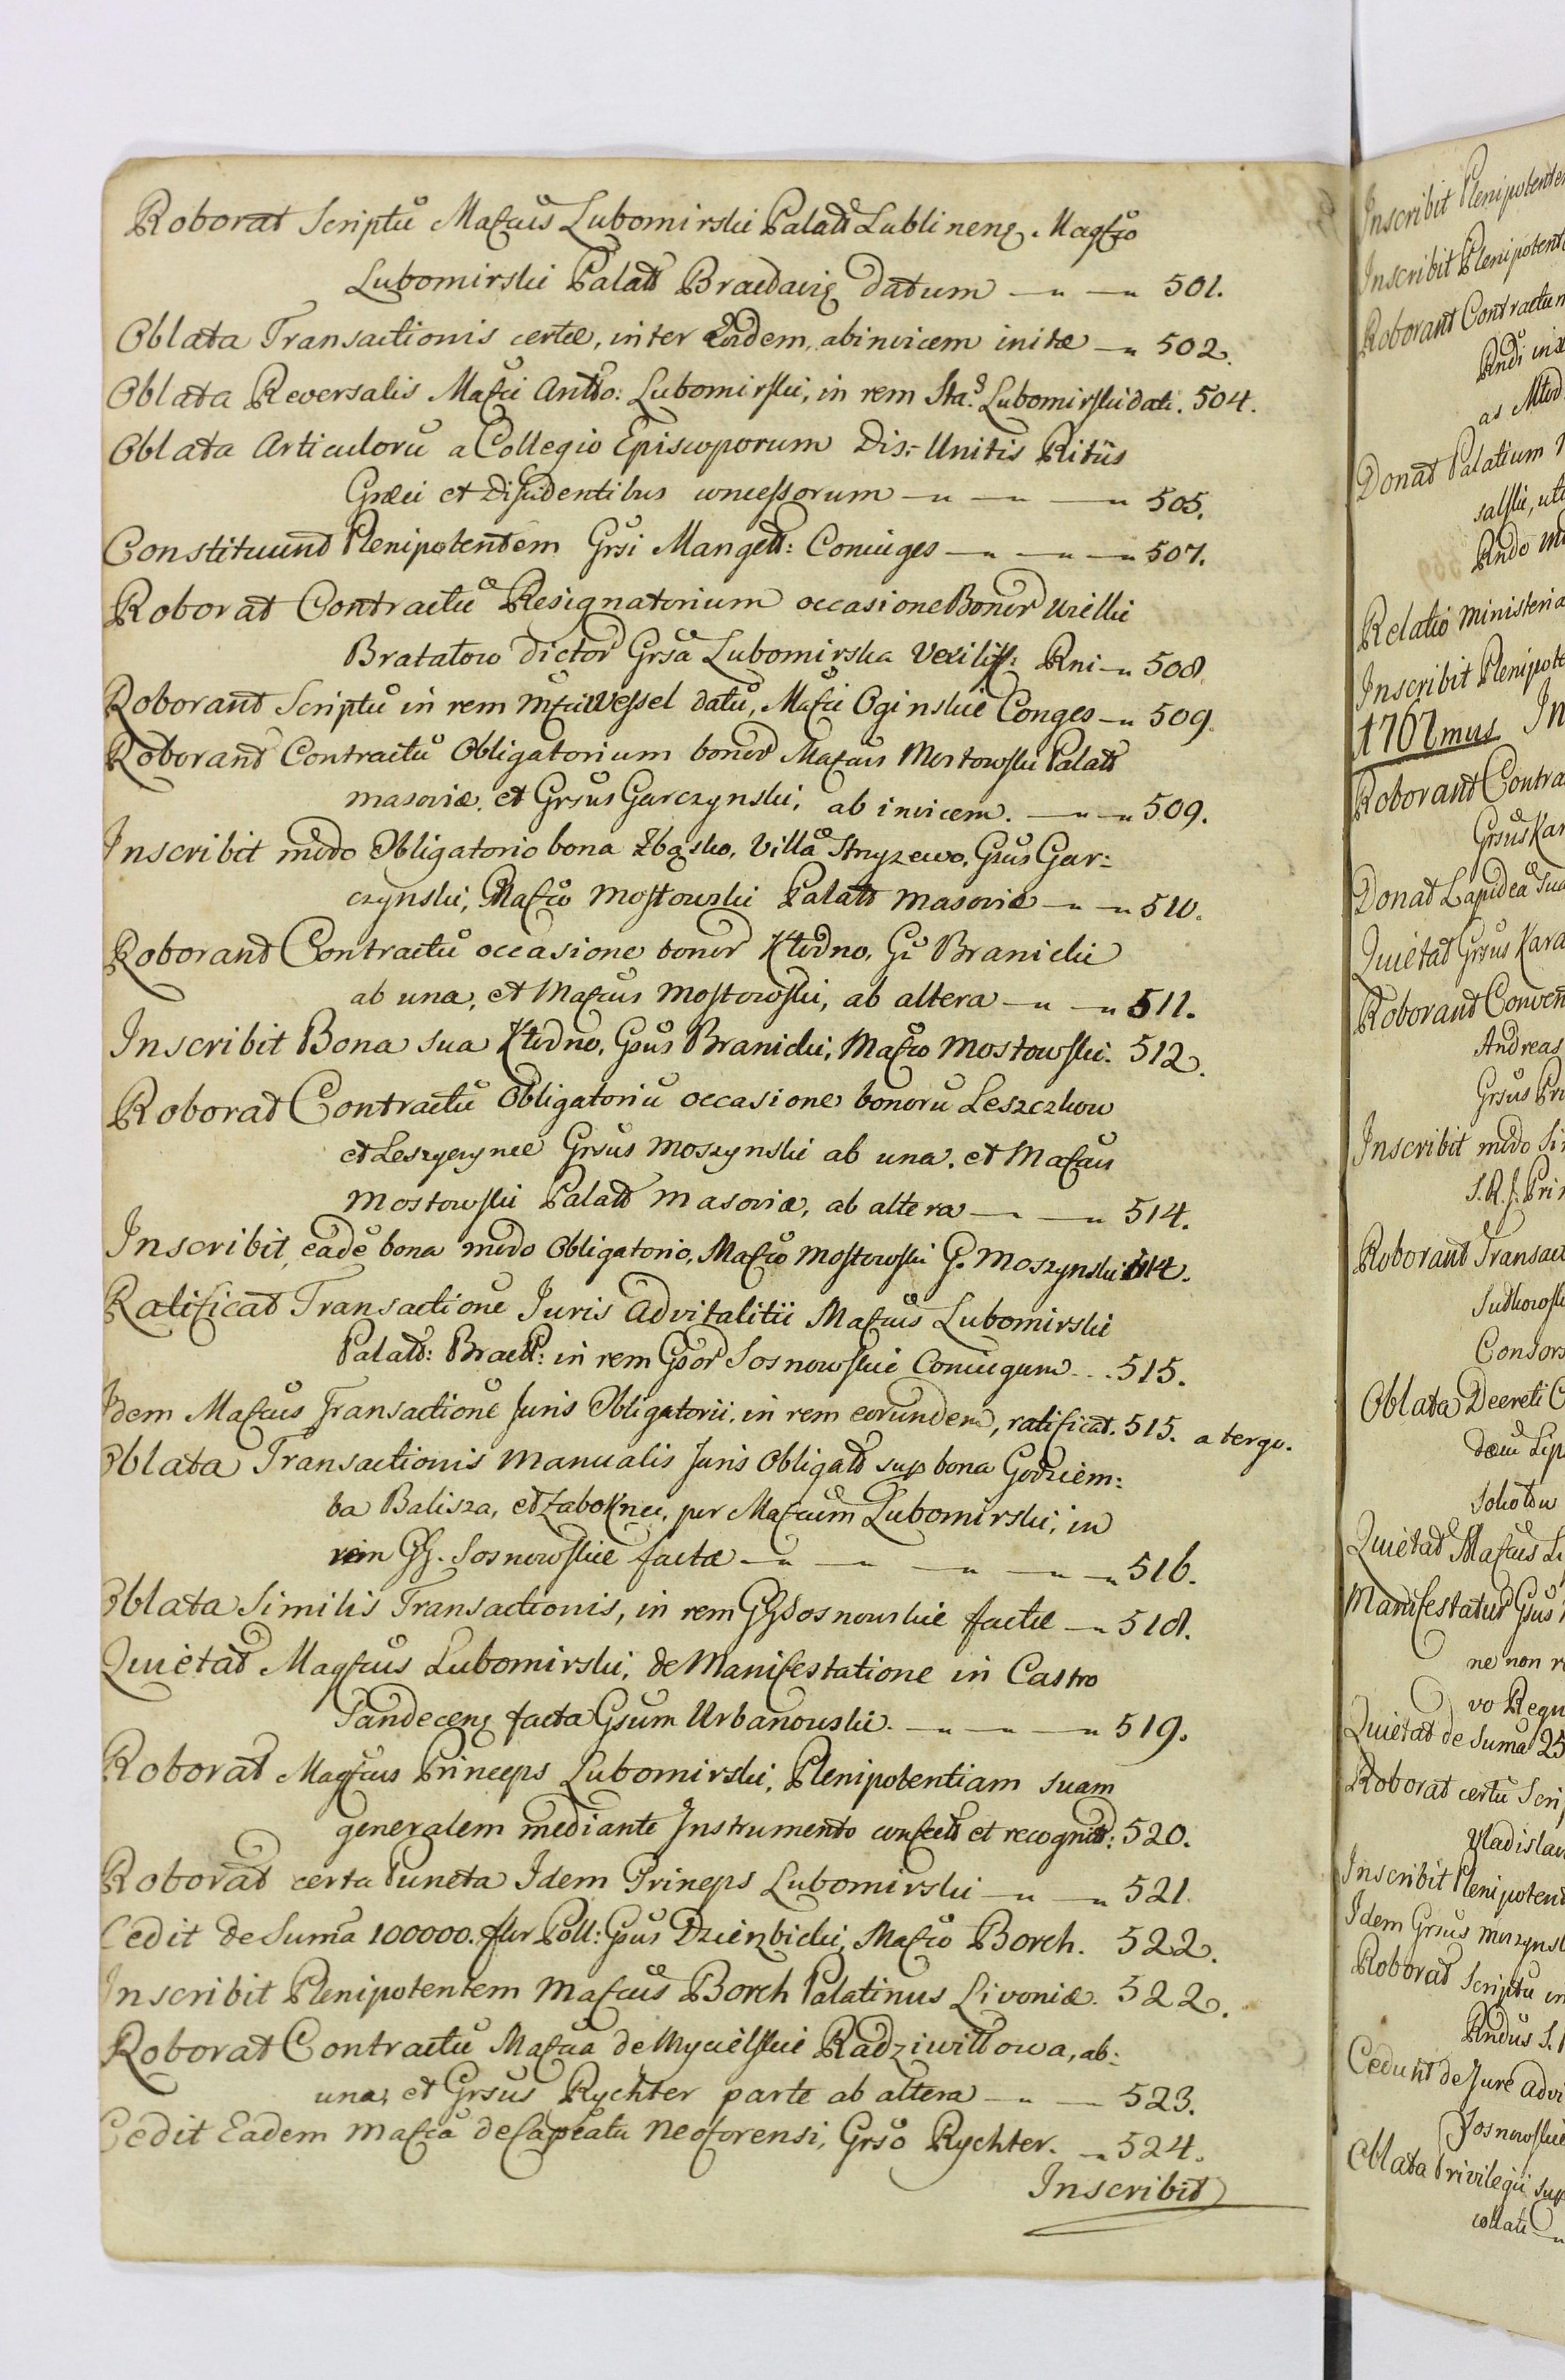 Roborat Scriptũ Mafcus Lubomirski Palatt Lublineng. Magfco
Lubomirski Palatt Braclavig datum — 501.
Oblata Transactionis certæ, inter Eosdem, abinvicem initæ — 502.
Oblata Reversalis Mafci Anto: Lubomirski, in rem Sta: Lubomirski dati. 504.
Oblata Articulorũ a Collegio Episcoporum Dis-Unitis Ritûs
Græci et Dissidentibus concessorum — 505.
Constituunt Plenipotentem Grsi Mangett: Coniuges — 507.
Roborat Contractũ Resignatorium occasione Bonor
Bratałow dictor Grsa Lubomirska Vexilif: Rni — 508.
Roborant Scriptũ in rem Mfci Wessel datũ, Mafci Oginskie Conges — 509.
Roborant Contractũ Obligatorium bonor Mafcus Mostowski Palatt
Masoviæ, et Grsus Garczynski, ab invicem. — 509.
Inscribit modo Obligatorio bona Zbąsko, Villã Stryzewo, Grsus Gar:
czynski, Mafco Mostowski Palatt Masoviæ — 510.
Roborant Contractũ occasione bonor Kłodno, Gr Branicki
ab una, et Mafcus Mostowski, ab altera — 511.
Inscribit Bona sua Kłodno, Gsus Branicki, Mafco Mostowski. 512.
Roborat Contractũ Obligatoriũ occasione bonorũ Leszczkow
et Leszczynce Grsus Moszynski ab una, et Mafcus
Mostowski Palatt Masoviæ, ab altera — 514.
Inscribit, eadẽ bona modo Obligatorio, Mafco Mostowski G. Moszynski 514.
Ratificat Transactionẽ Juris Advitalitii Mafcus Lubomirski
Palatt: Bracl: in rem Gsor Sosnowskie Coniugum... 515.
Idem Mafcus Transactionẽ Juris Obligatorii, in rem eorundem, ratificat. 515. a tergo.
Oblata Transactionis Manualis Juris Obligatt sup bona Godziem:
ba Balisza, et Zabokrzei, per Mafcum Lubomirski, in
rem GG. Sosnowskie factæ — 516.
Oblata Similis Transactionis, in rem GG Sosnowskie factæ — 518.
Quietat Magfcus Lubomirski, de Manifestatione in Castro
Sandeceng facta Gsum Urbanowski. — 519.
Roborat Magfcus Princeps Lubomirski, Plenipotentiam suam
generalem mediante Instrumento confectt et recognitt: 520.
Roborat certa Puncta Idem Princeps Lubomirski — 521
Cedit de Suma 100000. flor Poll: Gsus Dzierzbicki, Mafco Borch. 522.
Inscribit Plenipotentem Mafcus Borch Palatinus Livoniæ. 522.
Roborat Contractũ Mafca de Mycielskie Radziwiłłowa, ab:
una, et Grsus Rychter parte ab altera — 523.
Cedit Eadem Mafca de Capitatu Neoforensi, Grso Rychter. — 524.
Inscribit
Inscribit Plenipotente
Inscribit Plenipotent
Roborant Contractum
Rndi
as
Donat Palatium
Rndo
Relatio Ministeria
Inscribit Plenipote
1767mus In
Roborant Contra
Grsus Kar
Donat Lapideã Sua
Quietat Grsus Kara
Roborant Conven
Andreas
Grsus Pri
Inscribit modo Si
S. R. J. Pri
Roborant Transact
Sułkowski
Consors
Oblata Decreti C
Lip
Quietat Mafcus Lu
Manifestatur Gsus
ne non r
vo Regn
Quietat de Suma 25
Roborat certũ Scrip
Vladislau
Inscribit Plenipotent
Idem Grsus Moszynsk
Roborat Scriptũ in
Rndus S.
Cedunt de Jure Advi
Sosnowskie
Oblata Privilegii sup
collati —